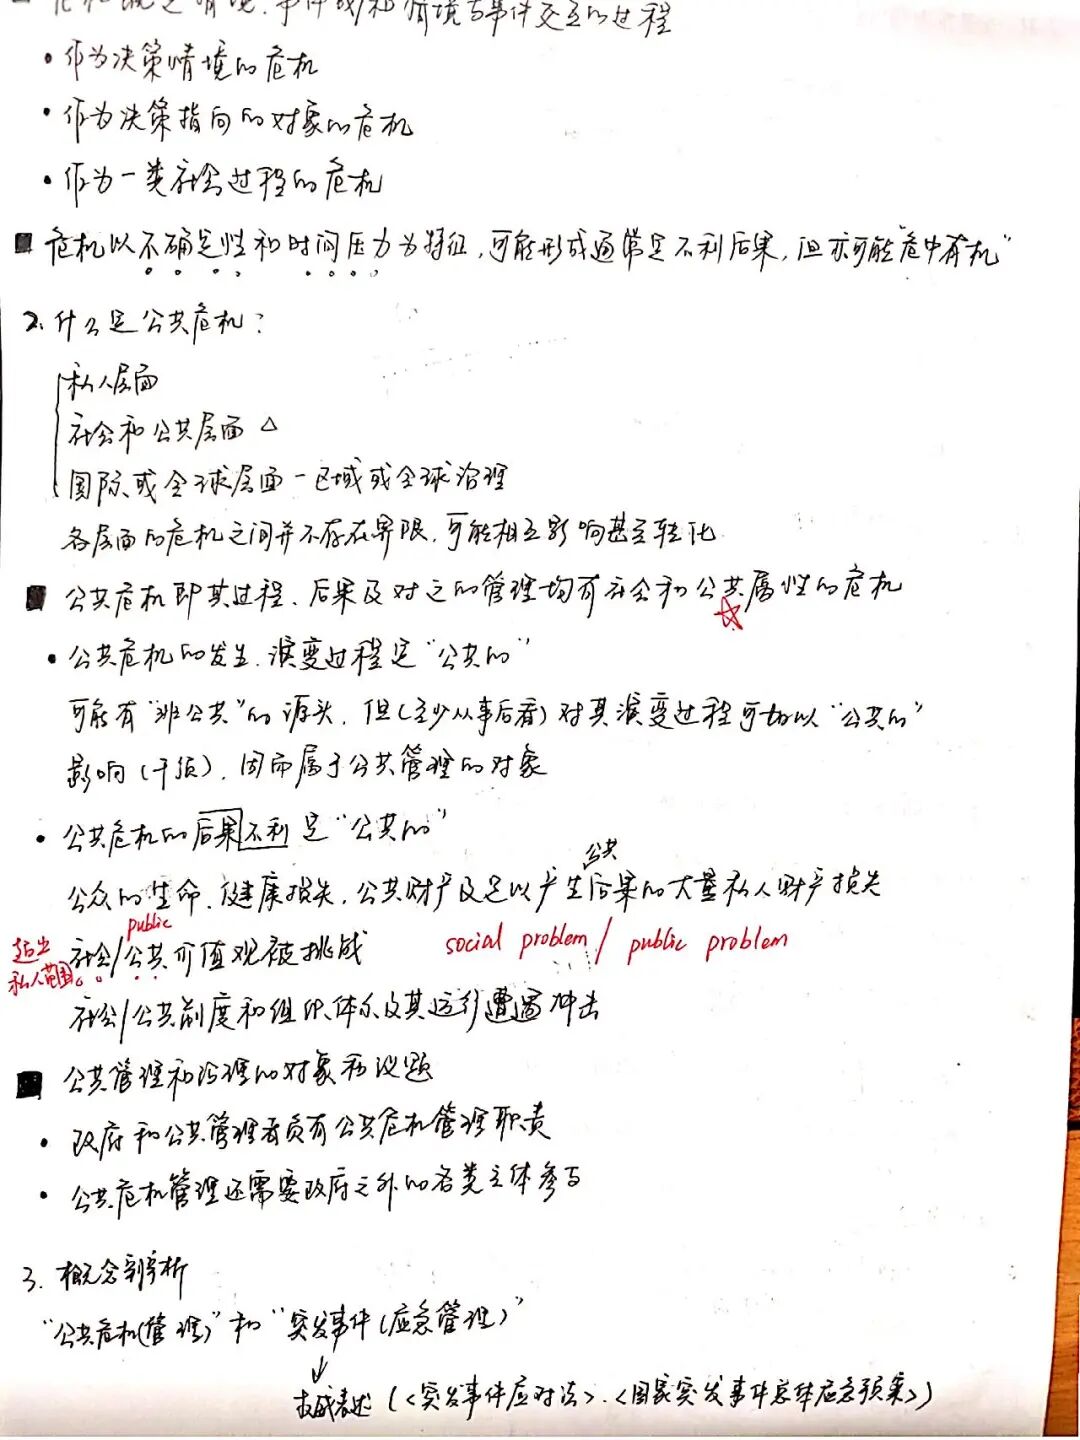 危机既是情境、事件或/和情境与事件交互的过程
· 作为决策情境的危机
· 作为决策指向的对象的危机
· 作为一类社会过程的危机
■ 危机以不确定性和时间压力为特征,可能形成通常是不利后果,但亦可能“危中有机”
2. 什么是公共危机?
私人层面
社会和公共层面 △
国际或全球层面-区域或全球治理
各层面的危机之间并不存在界限,可能相互影响甚至转化
■ 公共危机即其过程、后果及对之的管理均有社会和公共属性的危机
☆
· 公共危机的发生、演变过程是“公共的”
可能有“非公共”的源头,但(至少从事后看)对其演变过程可加以“公共的”
影响(干预),因而属于公共管理的对象
· 公共危机的后果不利是“公共的”
公共
公众的生命、健康损失,公共财产及足以产生后果的大量私人财产损失
public
超出 社会/公共价值观被挑战 social problem / public problem
私人范围
社会/公共制度和组织体系及其运行遭遇冲击
■ 公共管理和治理的对象和议题
· 政府和公共管理者负有公共危机管理职责
· 公共危机管理还需要政府之外的各类主体参与
3. 概念辨析
“公共危机(管理)”和“突发事件(应急管理)”
↓
权威表述(<突发事件应对法>、<国家突发事件总体应急预案>)